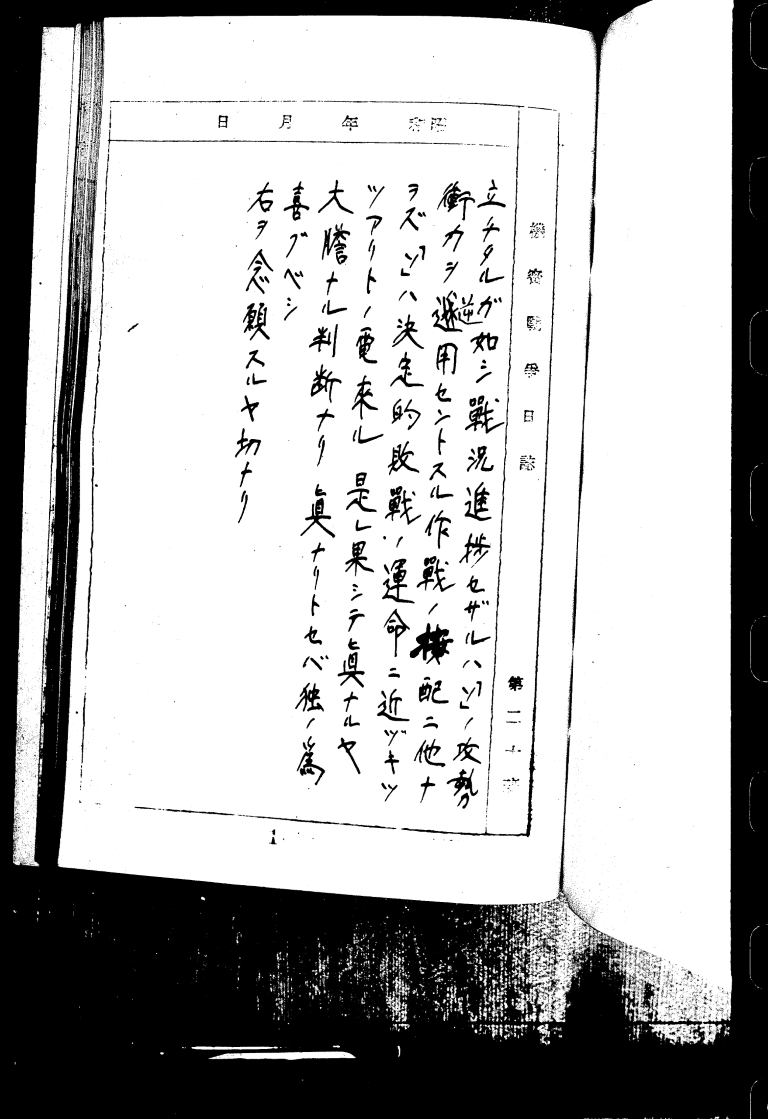 機密戰爭日誌
第二十
昭和 年 月 日
立チタルガ如シ戰況進捗セザルハ「ソ」ノ攻勢
衝力ヲ逆用セントスル作戰ノ按配ニ他ナ
ラズ「ソ」ハ決定的敗戰ノ運命ニ近ヅキツ
ツアリトノ電來ル 是レ果シテ眞ナルヤ
大膽ナル判断ナリ 眞ナリトセバ独ノ爲
喜ブベシ
右ヲ念願スルヤ切ナリ
1